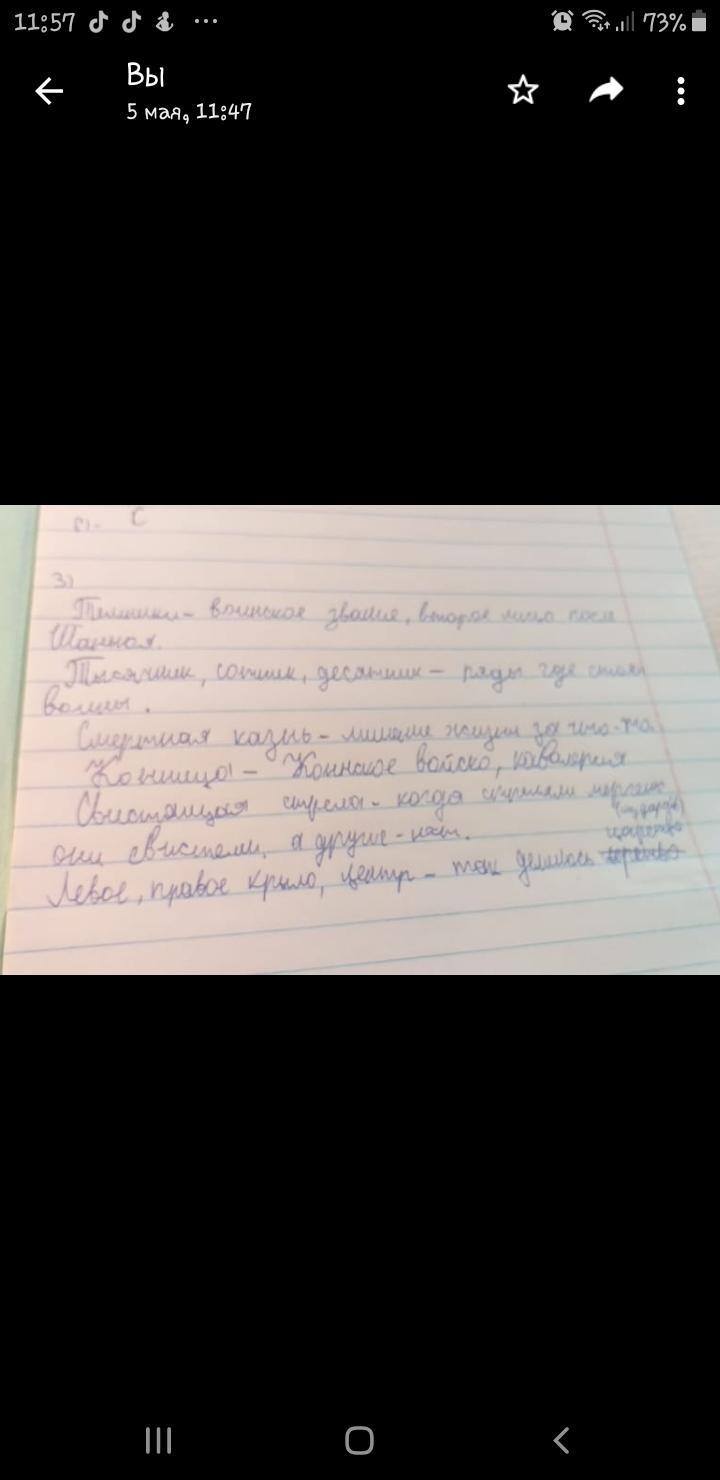 11:57
73%
Вы
5 мая, 11:47
C
3)
воинское звание, второе лицо после
Тысячник, сотник, десятник – ряды где стоят
воины.
Смертная казнь – лишение жизни за что-то.
Конница – Конинское войско, кавалерия
Свистящая стрела – когда стреляли
они свистели, а другие – нет.
царство
Левое, правое крыло, центр – так делилось